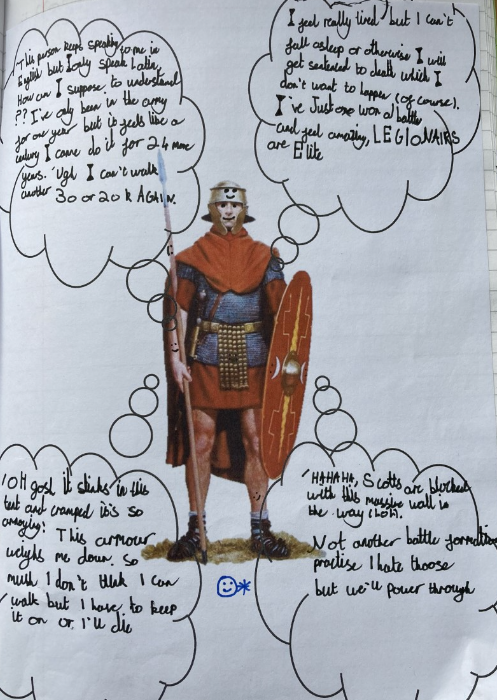 This person keeps speaking to me in
English but I only speak Latin,
How can I suppose to understand
?? I've only been in the army
for one year but it feels like a
century I came do it for 24 more
years. 'Ugh I can't walk
another 30 or 20 k AGAIN.
I feel really tired but I can't
fall asleep or otherwise I will
get sentenced to death which I
don't want to happen (of course).
I've Just one won a battle
and feel amazing, LEGIONAIRS
are Elite
'OH gosh it stinks in this
tent and cramped it's so
annoying! This armour
weighs me down so
mush I don't think I can
walk but I have to keep
it on or I'll die
'HAHAHA, Scotts are blocked
with this massive wall in
the way (LOL).
Not another battle formation
practise I hate those
but we'll power through